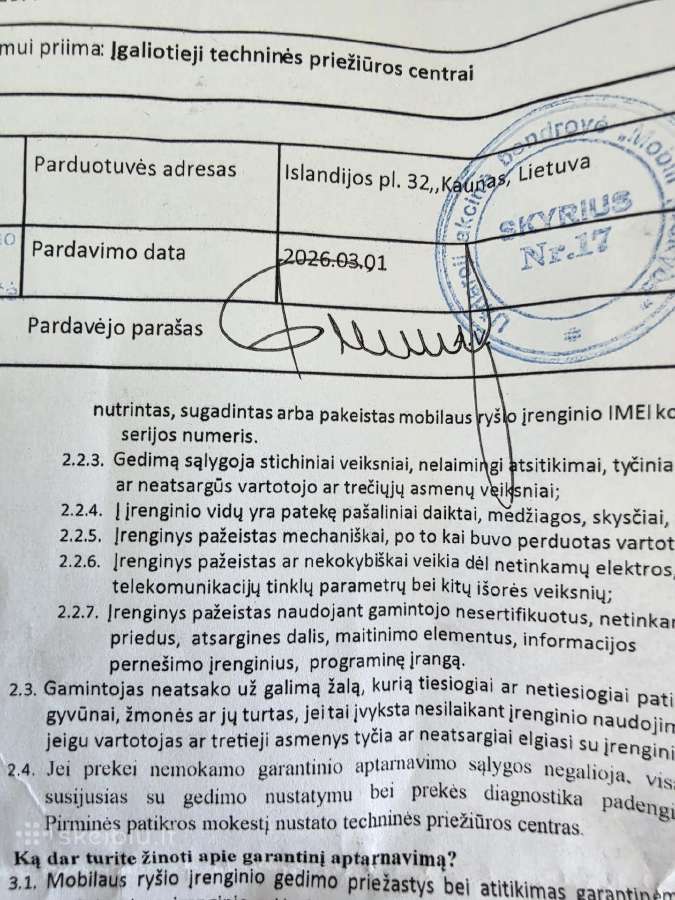 mui priima: Įgaliotieji techninės priežiūros centrai
Parduotuvės adresas
Islandijos pl. 32,,Kaunas, Lietuva
akcinė bendrovė „Mobili
SKYRIUS
Nr.17
Pardavimo data
2026.03.01
Pardavėjo parašas
A.V.
nutrintas, sugadintas arba pakeistas mobilaus ryšio įrenginio IMEI
serijos numeris.
2.2.3. Gedimą sąlygoja stichiniai veiksniai, nelaimingi atsitikimai, tyčinia
ar neatsargūs vartotojo ar trečiųjų asmenų veiksniai;
2.2.4. Į įrenginio vidų yra patekę pašaliniai daiktai, medžiagos, skysčiai,
2.2.5. Įrenginys pažeistas mechaniškai, po to kai buvo perduotas vartot
2.2.6. Įrenginys pažeistas ar nekokybiškai veikia dėl netinkamų elektros,
telekomunikacijų tinklų parametrų bei kitų išorės veiksnių;
2.2.7. Įrenginys pažeistas naudojant gamintojo nesertifikuotus, netinkam
priedus, atsargines dalis, maitinimo elementus, informacijos
pernešimo įrenginius, programinę įrangą.
2.3. Gamintojas neatsako už galimą žalą, kurią tiesiogiai ar netiesiogiai pati
gyvūnai, žmonės ar jų turtas, jei tai įvyksta nesilaikant įrenginio naudojim
jeigu vartotojas ar tretieji asmenys tyčia ar neatsargiai elgiasi su įrengini
2.4. Jei prekei nemokamo garantinio aptarnavimo sąlygos negalioja, visa
susijusias su gedimo nustatymu bei prekės diagnostika padengi
Pirminės patikros mokestį nustato techninės priežiūros centras.
skelbiu.lt
Ką dar turite žinoti apie garantinį aptarnavimą?
3.1. Mobilaus ryšio įrenginio gedimo priežastys bei atitikimas garantinėm